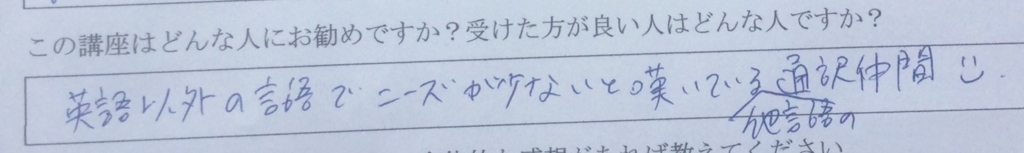 この講座はどんな人にお勧めですか？受けた方が良い人はどんな人ですか？
英語以外の言語でニーズが少ないと嘆いている他言語の通訳仲間☺.
感想があれば教えてください